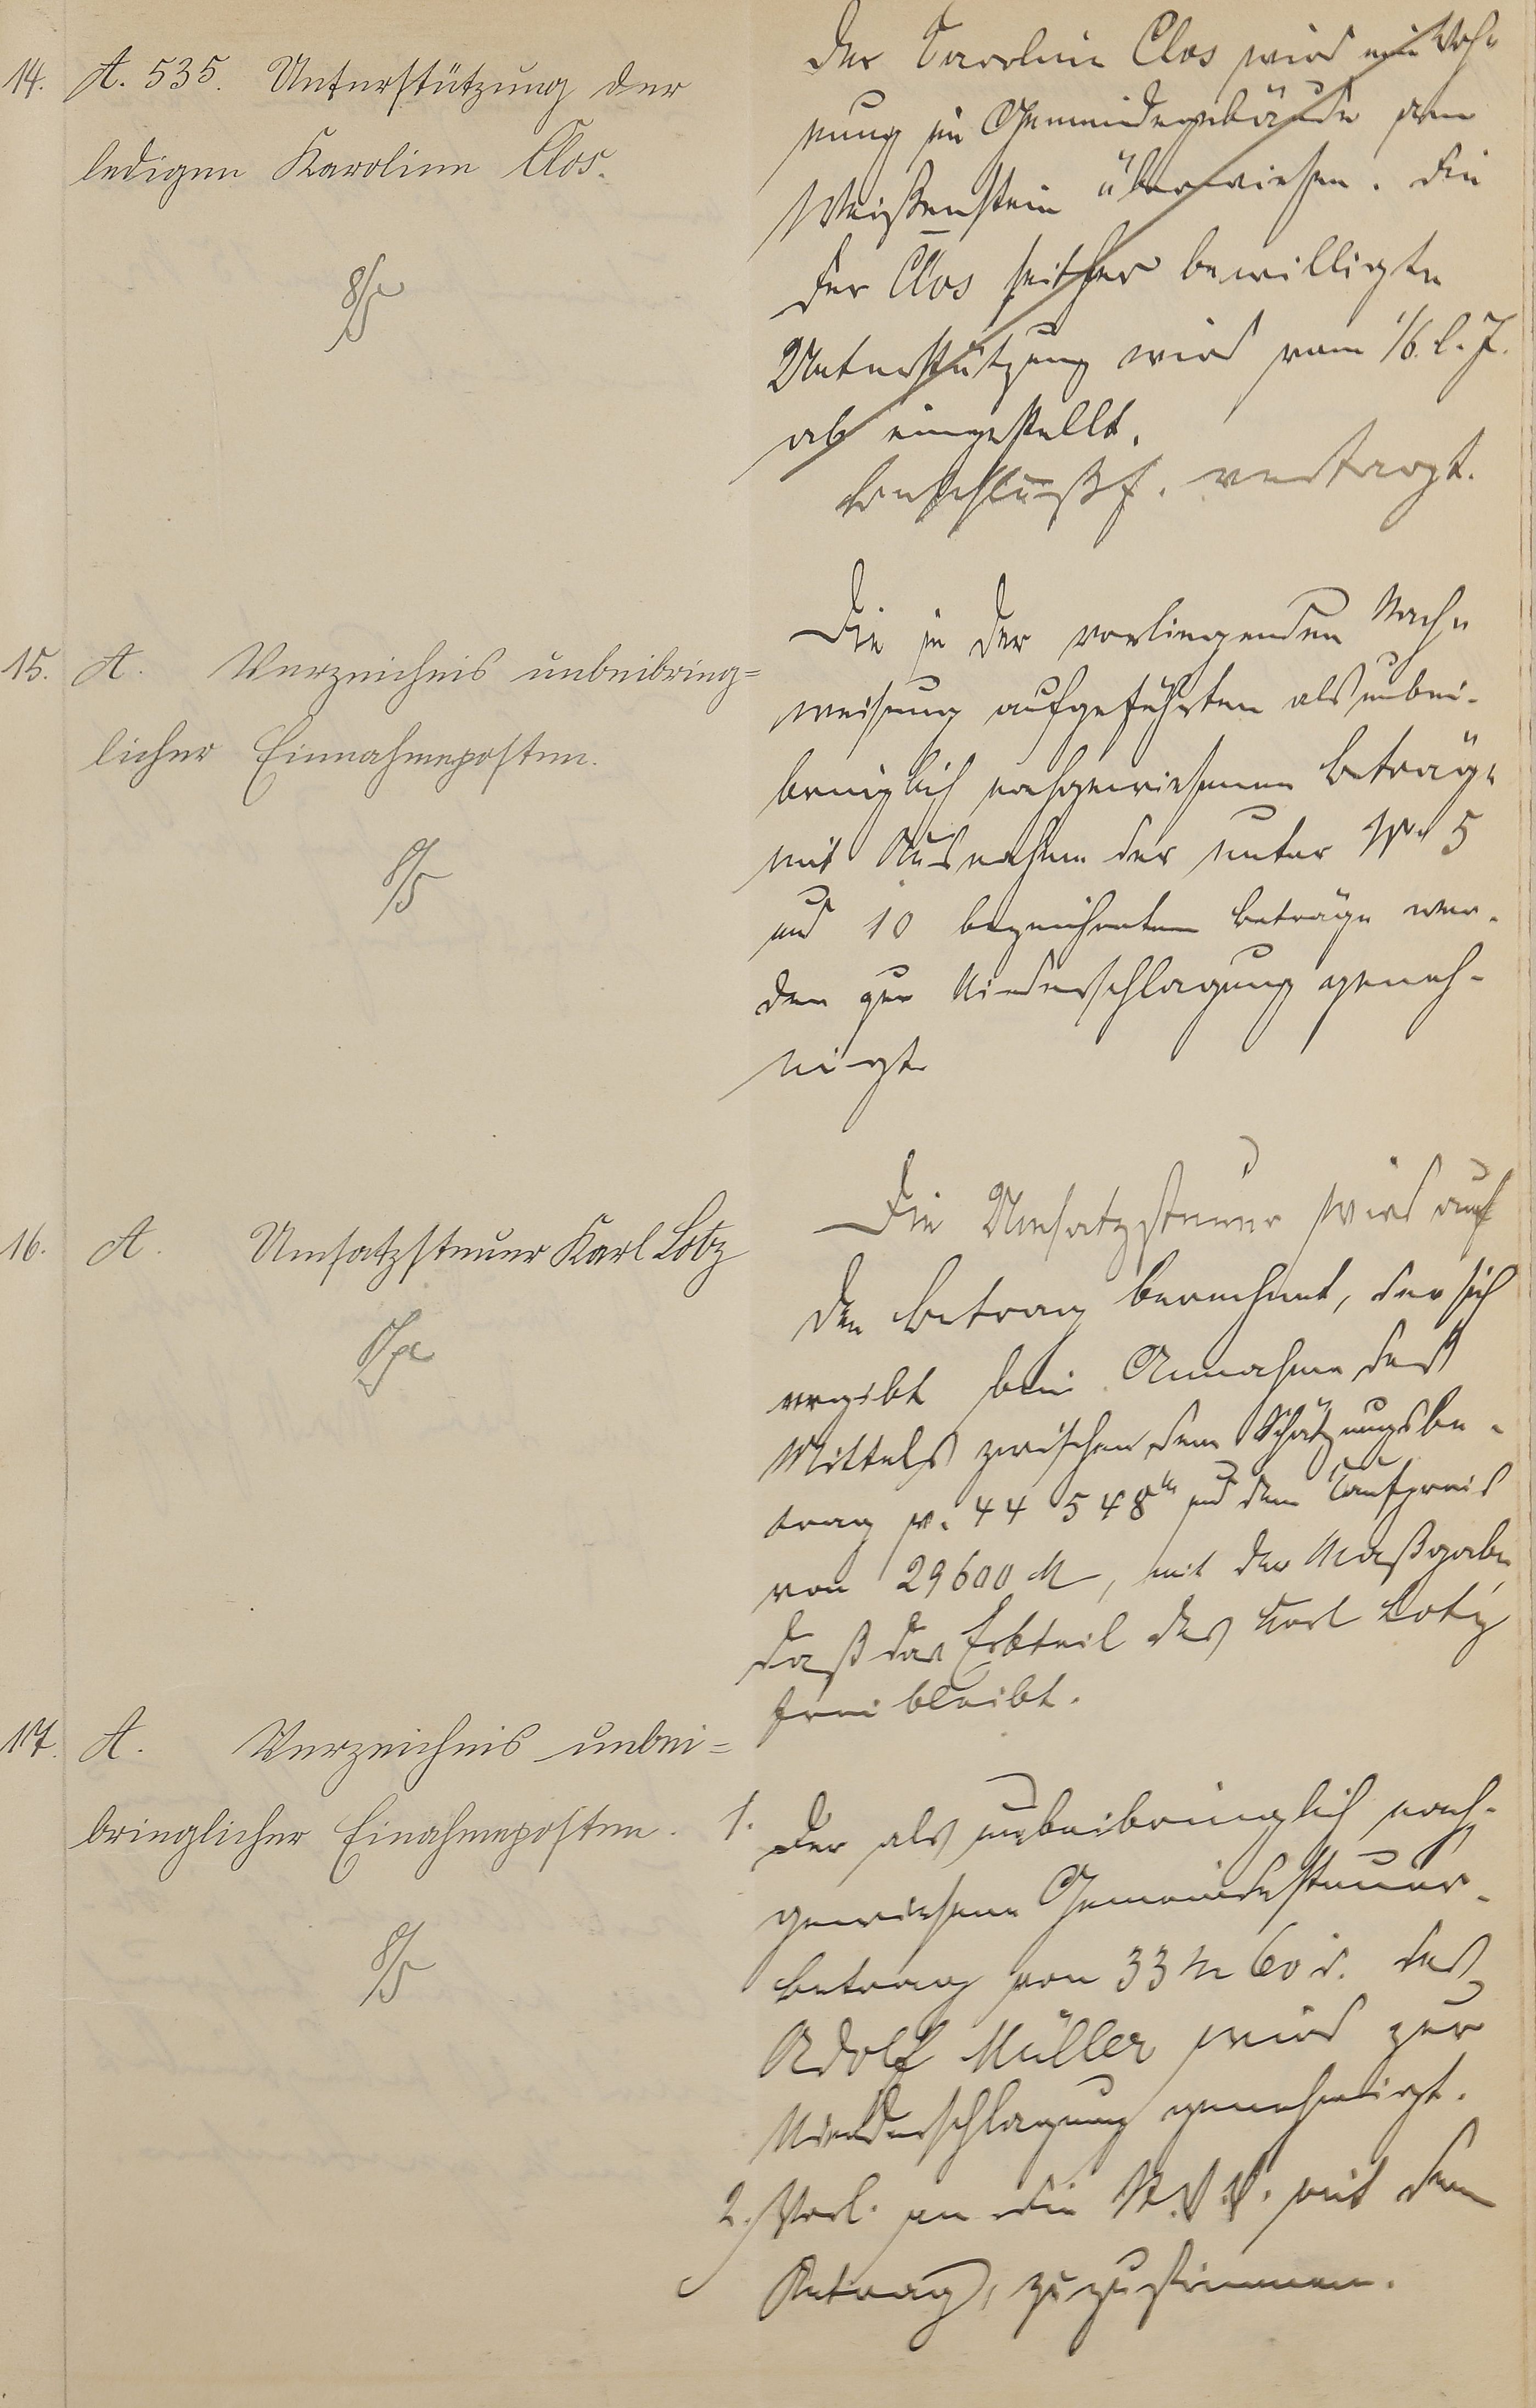 14. A. 535. Unterstützung der
ledigen Karoline Clos.
8/5
Der Karoline Clos wird eine Woh-
nung im Gemeindegebäude am
Weißenstein überwiesen. Die
der Clos seither bewilligte
Unterstützung wird vom 1/6. l. J.
ab eingestellt.
Beschlußf. vertagt.
15. A. Verzeichnis unbeibring=
licher Einnahmeposten.
8/5
Die in der vorliegenden Nach-
weisung aufgeführten als unbei-
bringlich nachgewiesenen Beträge
mit Ausnahme der unter No 5
und 10 bezeichneten Beträge wer-
den zur Niederschlagung geneh-
migt
16. A Umsatzsteuer Karl Lotz
Die Umsatzsteuer wird auf
den Betrag berechnet, der sich
ergibt bei Annahme des
Mittels zwischen dem Schätzungsbe-
trag v. 44 548 M und dem Kaufpreis
von 29600 M, mit der Maßgabe,
daß das Erbteil des Karl Lotz
frei bleibt.
17. A. Verzeichnis unbei=
bringlicher Einahmeposten.
8/5
1. Der als unbeibringlich nach-
gewiesene Gemeindesteuer-
betrag von 33 M 60 d. des
Adolf Müller wird zur
Niederschlagung genehmigt.
2. Vorl. an die St. V. V. mit dem
Antrag, zuzustimmen.